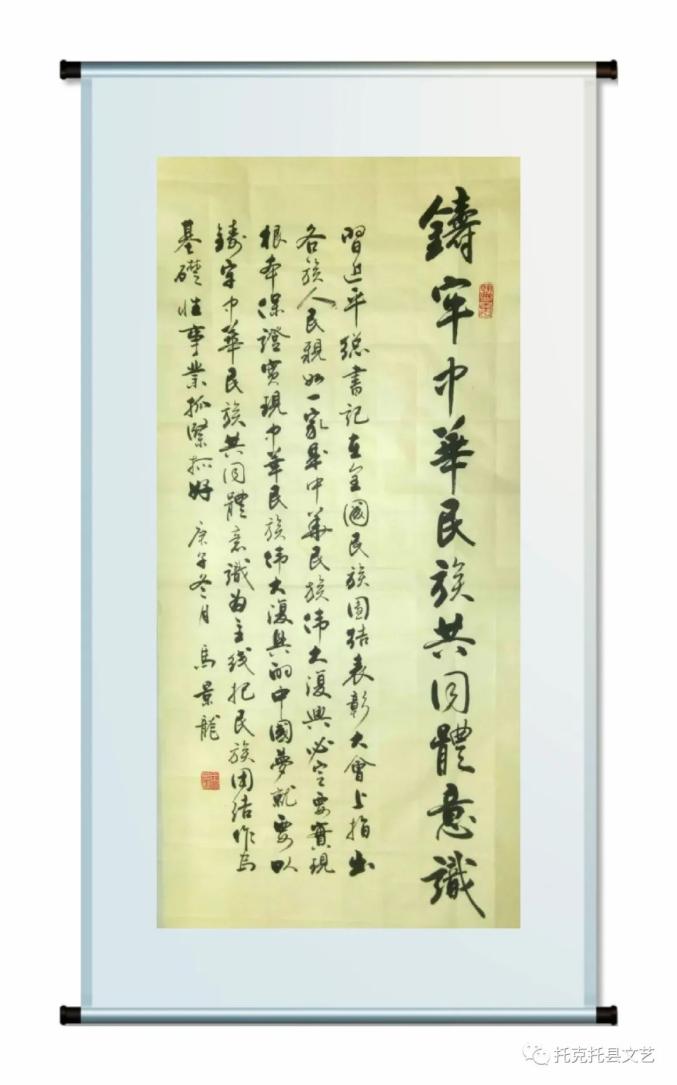 鑄牢中華民族共同體意識
習近平総書記在全國民族團结表彰大會上指出
各族人民親如一家是中華民族伟大復興必定要實現
根本保證實現中華民族伟大復興的中國夢就要以
鑄牢中華民族共同體意識为主线把民族团结作为
基礎性事業抓緊抓好 庚子冬月 馬景龍
托克托县文艺